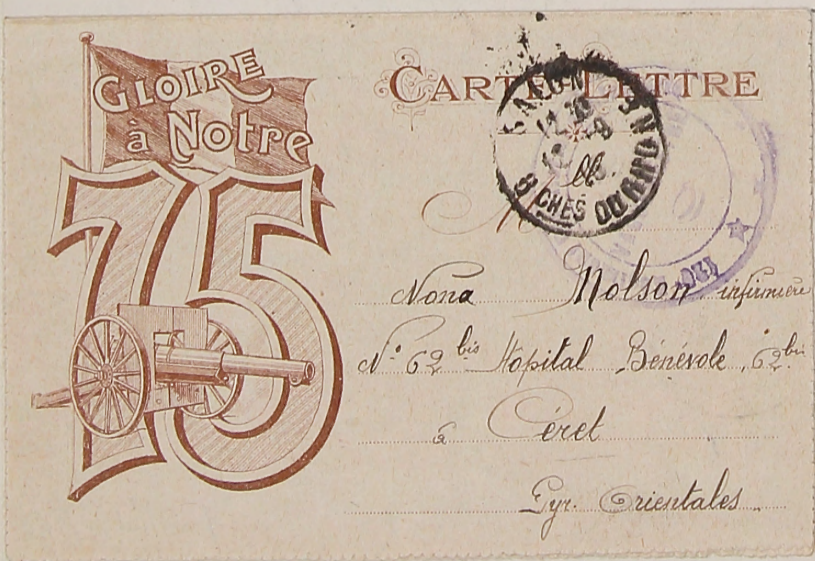 GLOIRE
à Notre
75
CARTE-LETTRE
SALON
BCHES DU RHONE
M lle
Nona Molson infirmière
N° 62 bis Hopital Bénévole 62 bis
à Céret
Pyr. Orientales